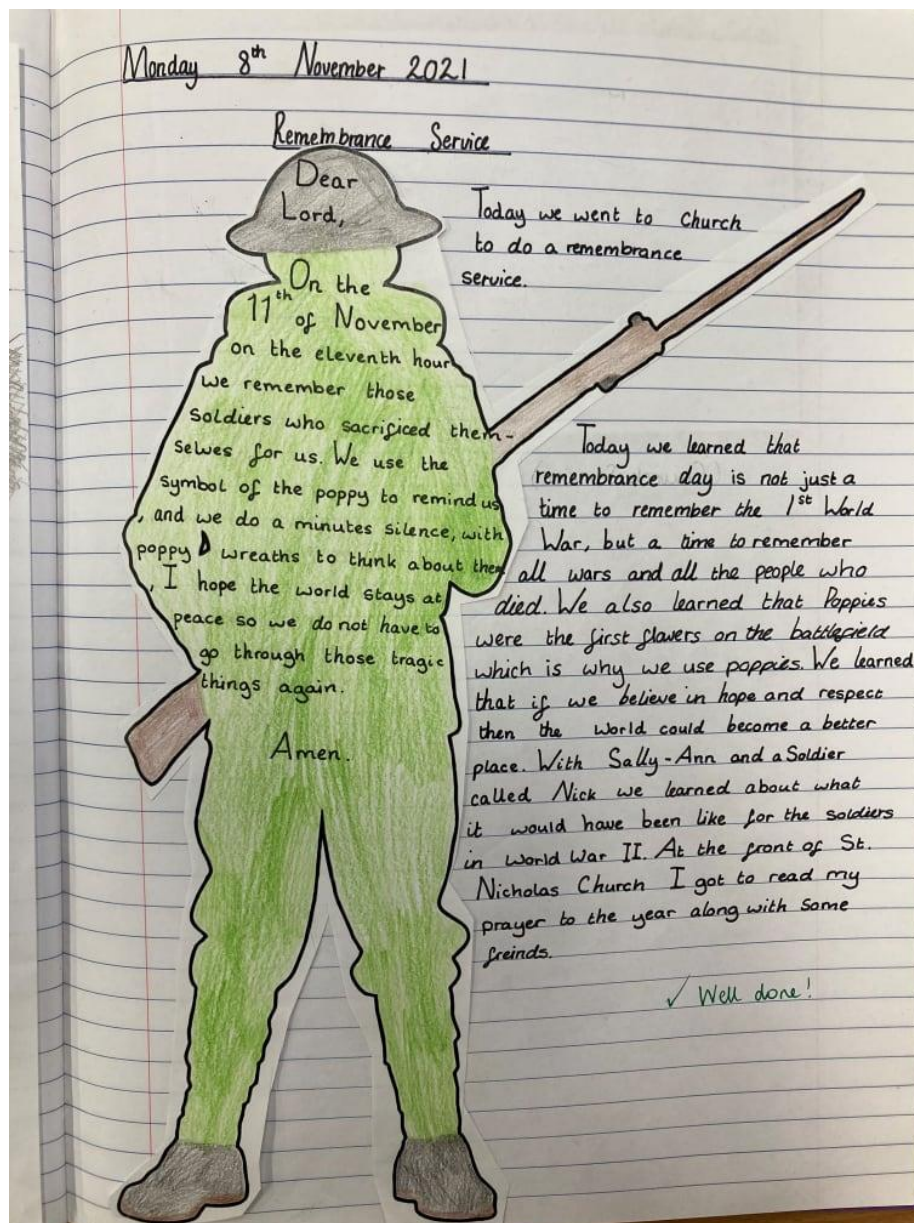 Monday 8th November 2021
Remembrance Service
Dear
Lord,
On the
11th of November
on the eleventh hour
we remember those
soldiers who sacrificed them-
selves for us. We use the
symbol of the poppy to remind us
, and we do a minutes silence, with
poppy wreaths to think about them
, I hope the world stays at
peace so we do not have to
go through those tragic
things again.
Amen.
Today we went to church
to do a remembrance
service.
Today we learned that
remembrance day is not just a
time to remember the 1st World
War, but a time to remember
all wars and all the people who
died. We also learned that Poppies
were the first flawers on the battlefield
which is why we use poppies. We learned
that if we believe in hope and respect
then the world could become a better
place. With Sally-Ann and a Soldier
called Nick we learned about what
it would have been like for the soldiers
in World War II. At the front of St.
Nicholas Church I got to read my
prayer to the year along with some
freinds.
✓ Well done!